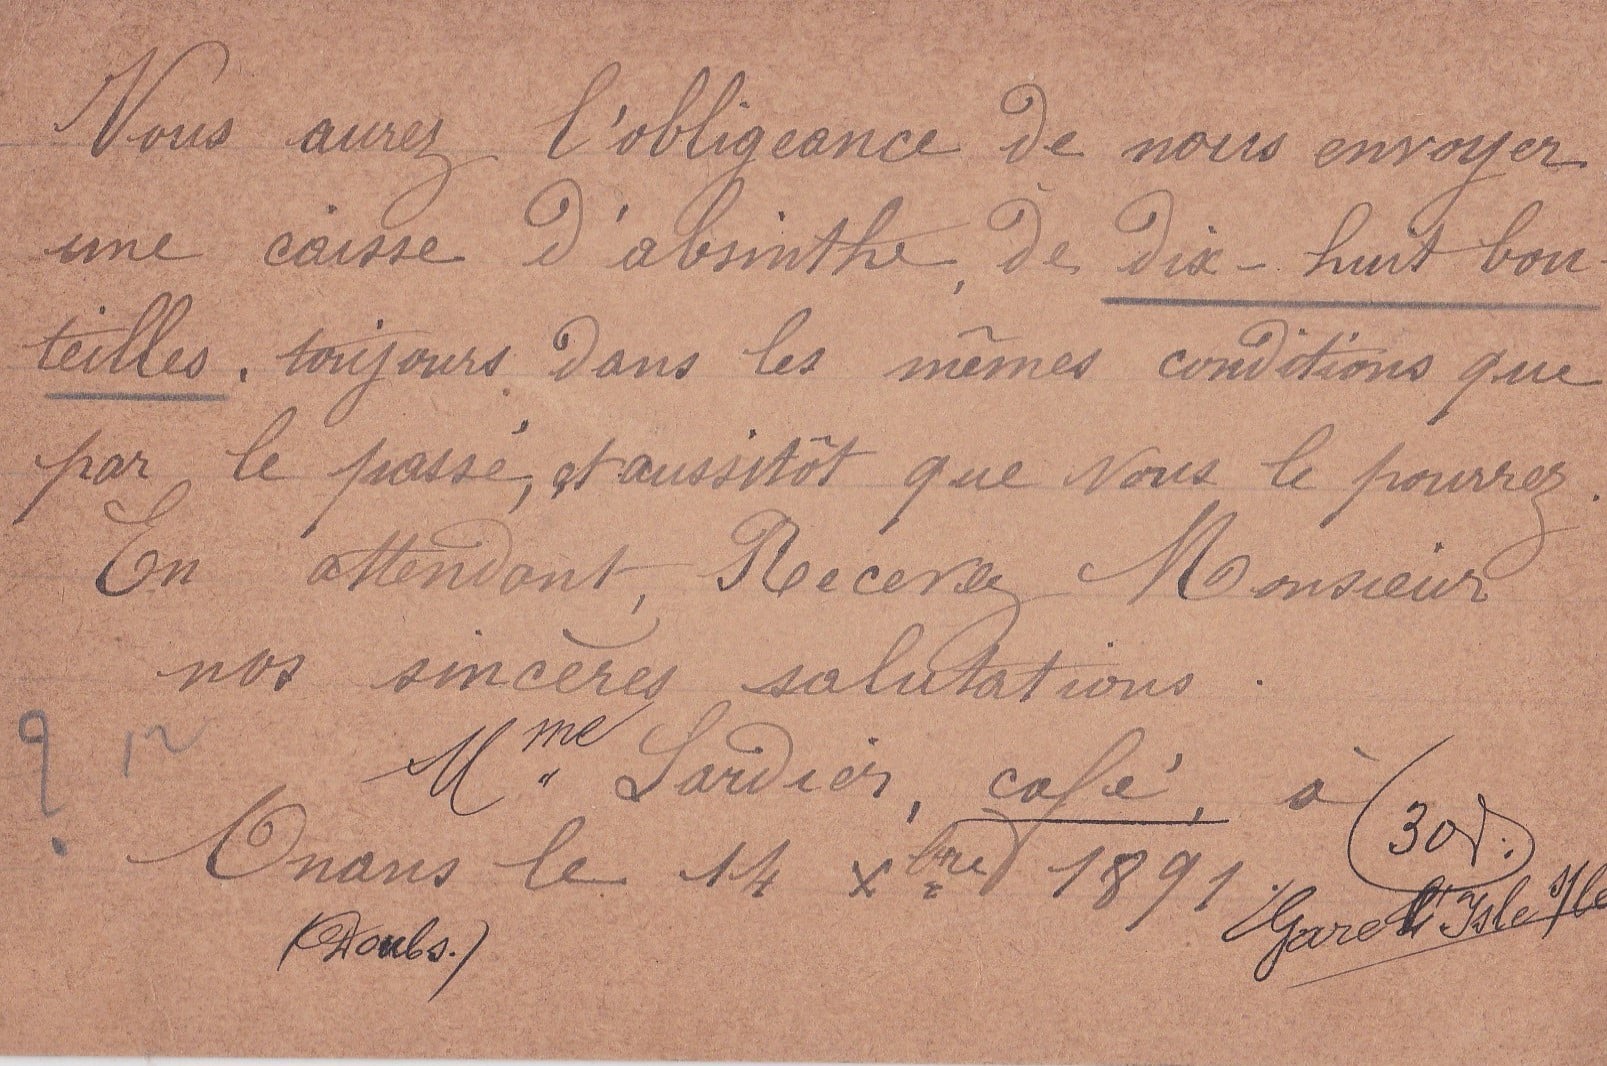 Vous aurez l'obligeance de nous envoyer
une caisse d'absinthe, de dix-huit bou-
teilles. toujours dans les mêmes conditions que
par le passé, et aussitôt que vous le pourrez.
En attendant, Recevez Monsieur
nos sincères salutations.
Mme Sardier, café, à
Onans le 14 Xbre 1891.
30
(Doubs.)
Gare Isle s/le